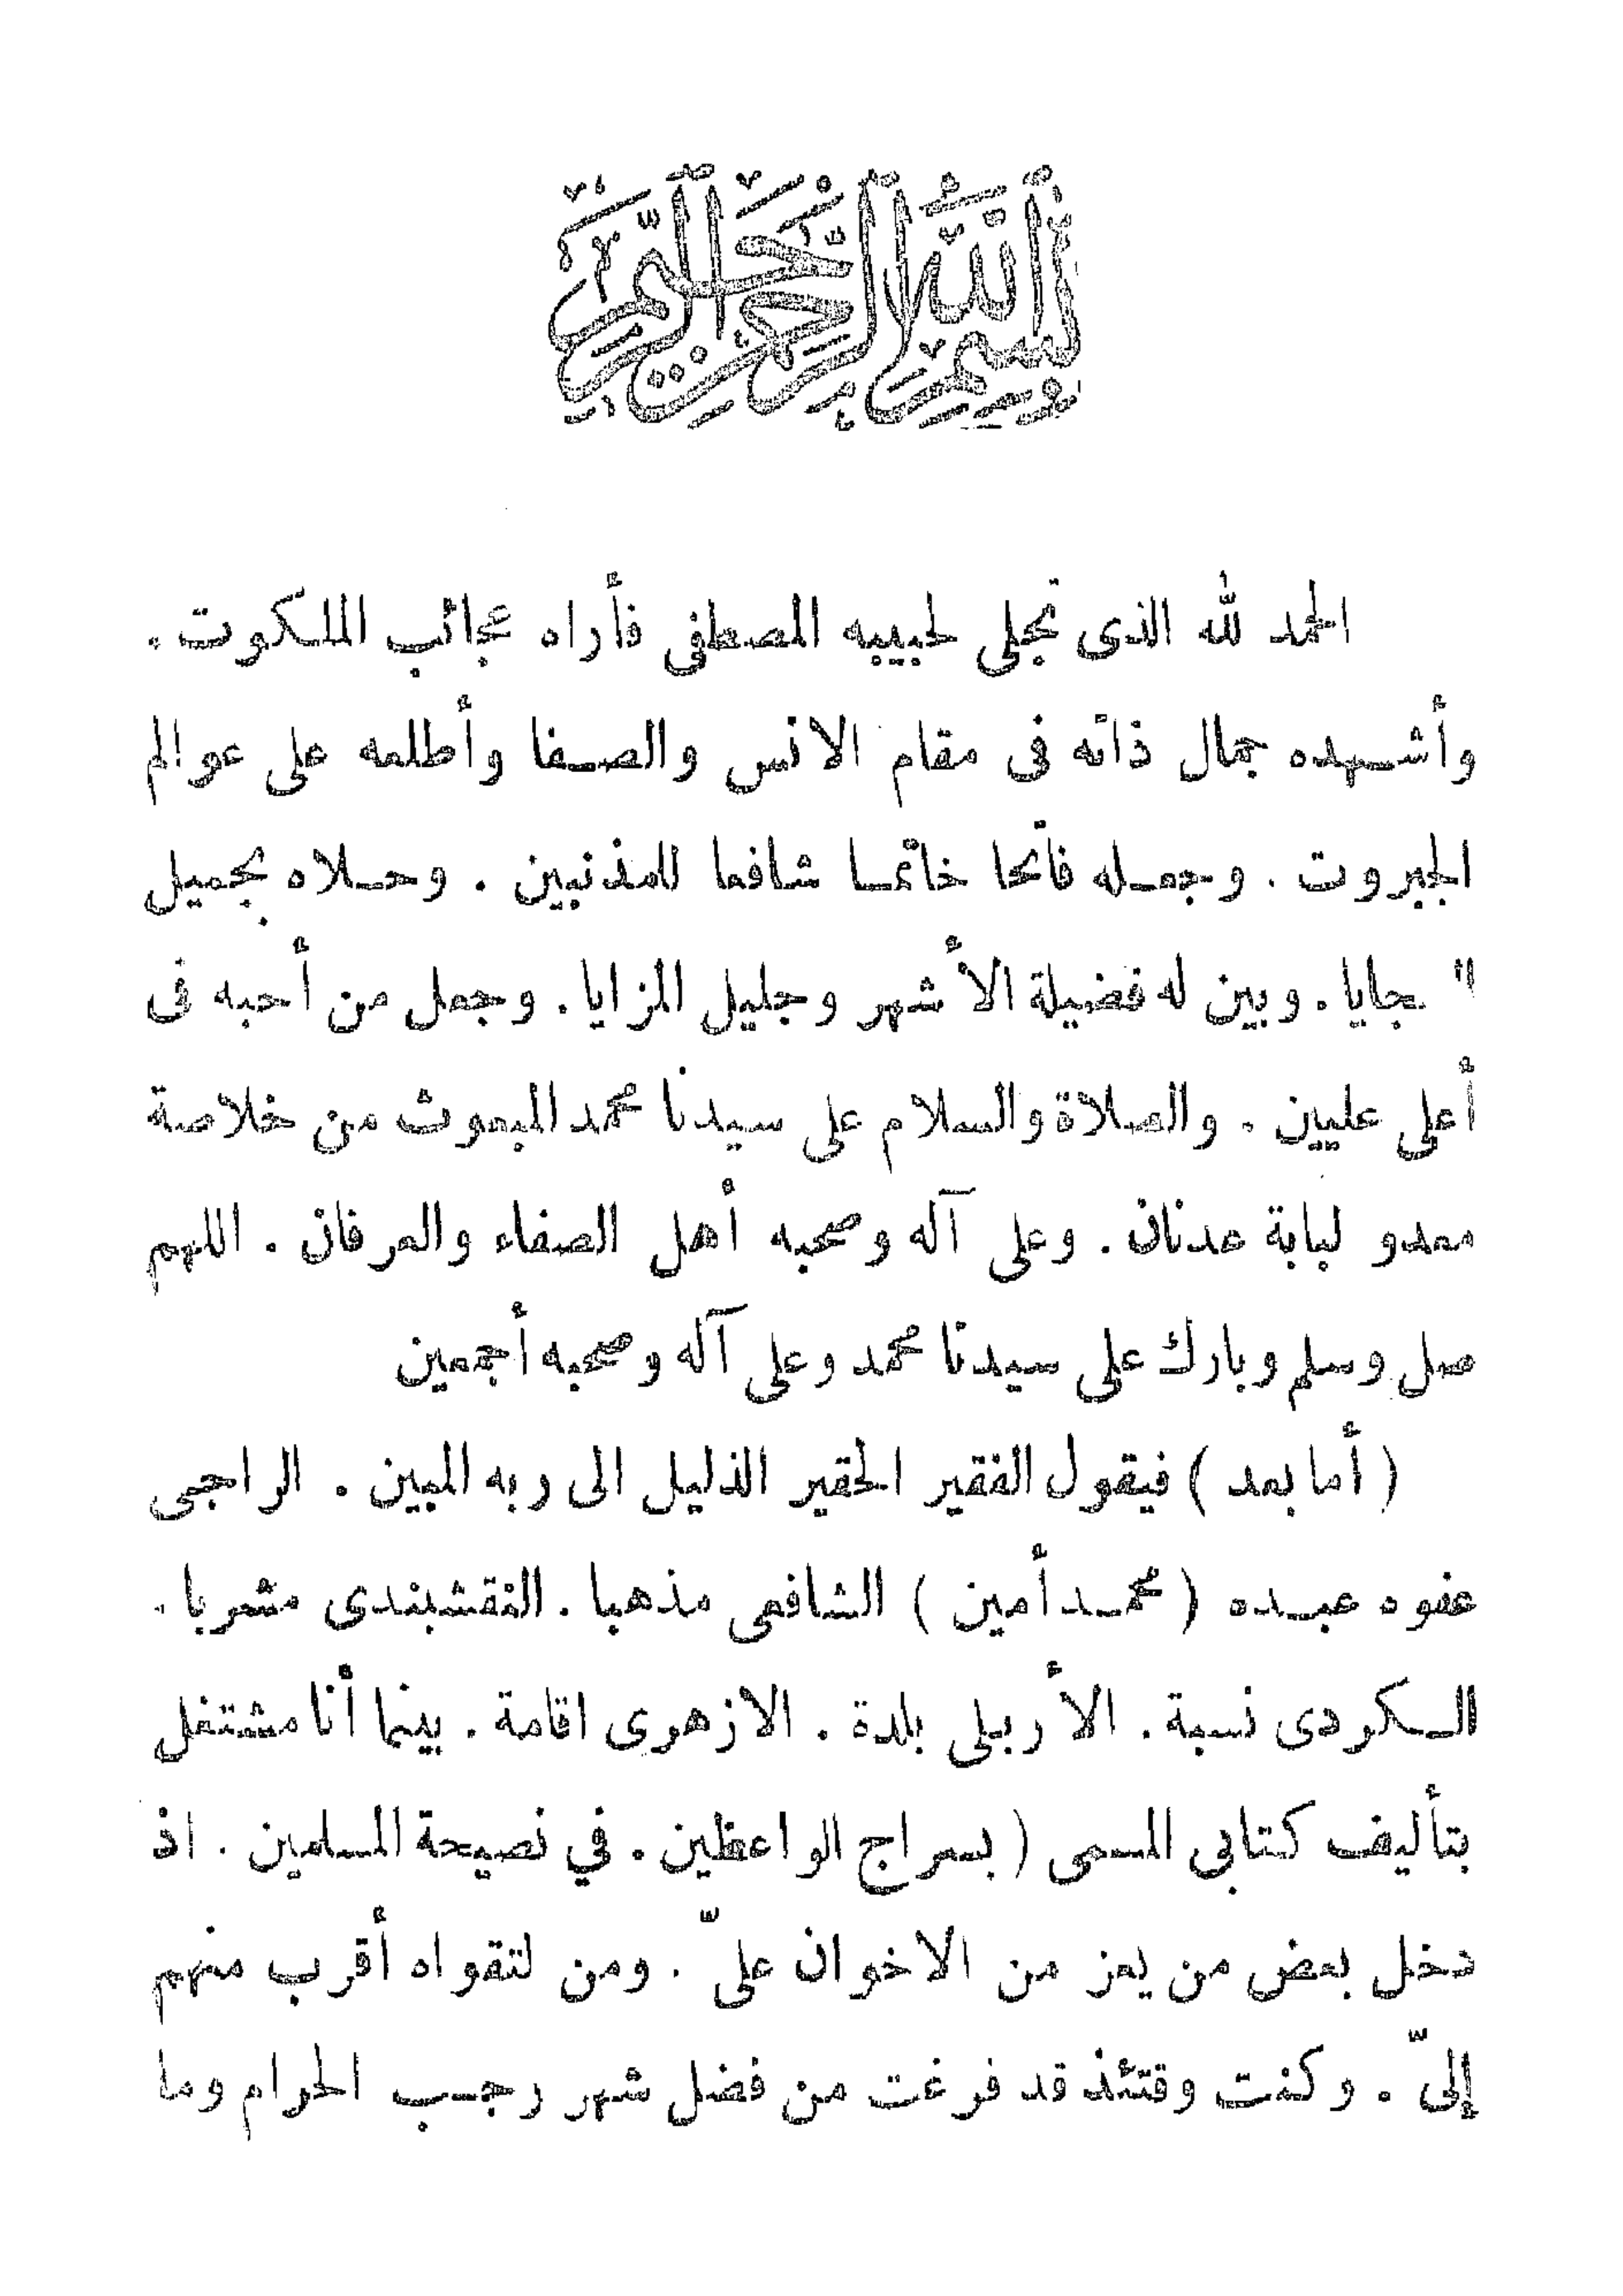 بسم الله الرحمن الرحيم
الحمد لله الذى تجلى لحبيبه المصطفى فأراه عجائب الملكوت .
وأشهده جمال ذاته فى مقام الانس والصفا وأطلعه على عوالم
الجبروت . وجعله فاتحا خاتما شافعا للمذنبين . وحلاه بجميل
السجايا . وبين له فضيلة الأشهر وجليل المزايا . وجعل من أحبه فى
أعلى عليين . والصلاة والسلام على سيدنا محمد المبعوث من خلاصة
معدو لبابة عدنان . وعلى آله وصحبه أهل الصفاء والعرفان . اللهم
صل وسلم وبارك على سيدنا محمد وعلى آله وصحبه أجمعين
( أما بعد ) فيقول الفقير الحقير الذليل الى ربه المبين . الراجى
عفوه عبده ( محمد أمين ) الشافعى مذهبا . النقشبندى مشربا .
الكردى نسبة . الأربلى بلدة . الازهرى اقامة . بينما أنا مشتغل
بتأليف كتابى المسمى ( بسراج الواعظين . في نصيحة المسلمين . اذ
دخل بعض من يعز من الاخوان علىّ . ومن لتقواه أقرب منهم
إلىّ . وكنت وقتئذ قد فرغت من فضل شهر رجب الحرام وما